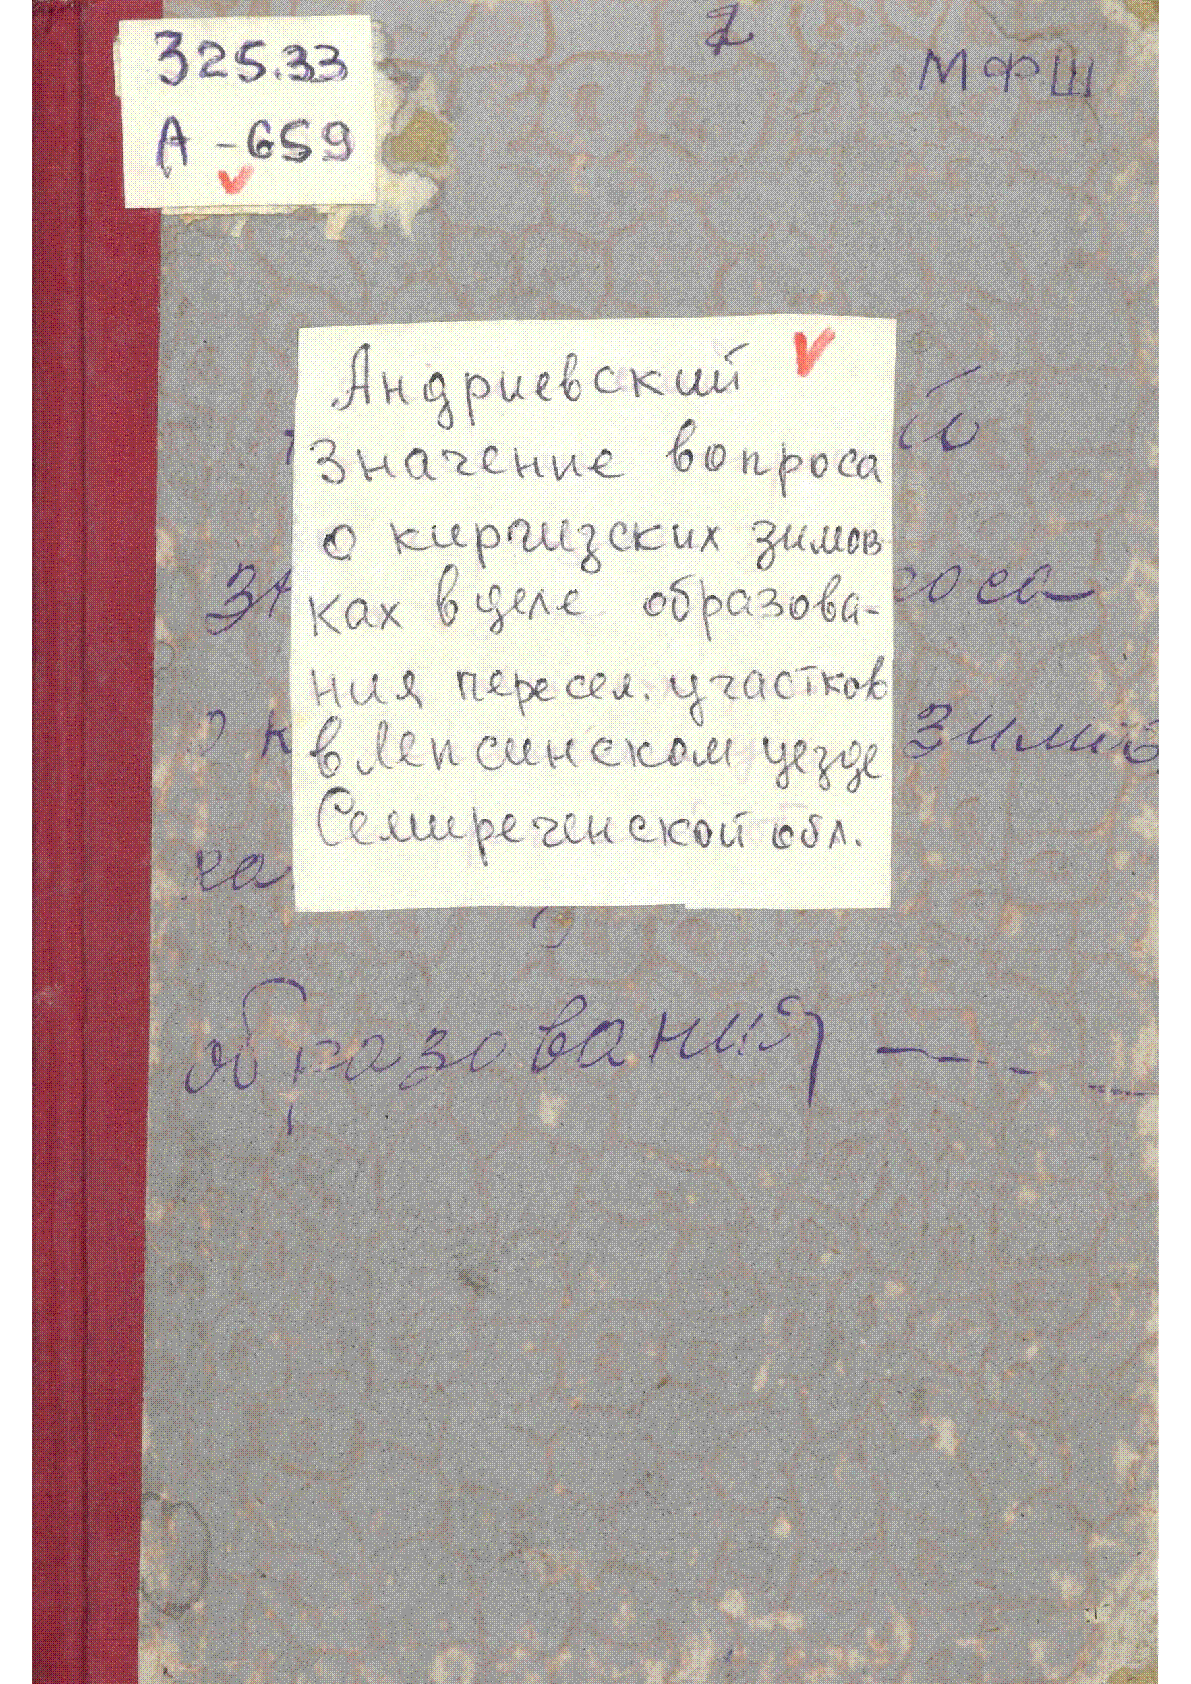 325.33
А-659
МФШ
Андриевский
Значение вопроса
о киргизских зимов
ках в деле образова-
ния пересел. участков
в Лепсинском уезде
Семиреченской обл.
образования